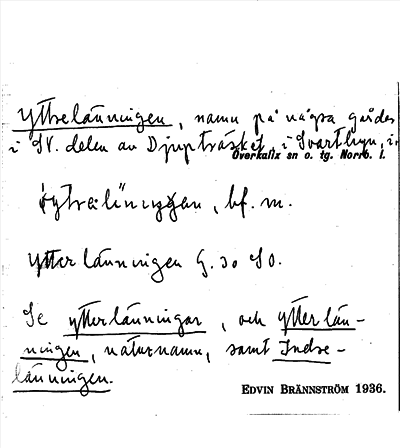 Yttrelänningen, namn på några gårdar
i SV. delen av Djupträsket, i Svartbyn, i
Överkalix sn o. tg. Norrb. l.
ytrəlìnıŋŋən, bf. m.
Ytterlänningen G. 30 SO.
Se ytterlänningar, och ytterlän-
ningen, naturnamn, samt Indre-
länningen.
EDVIN BRÄNNSTRÖM 1936.